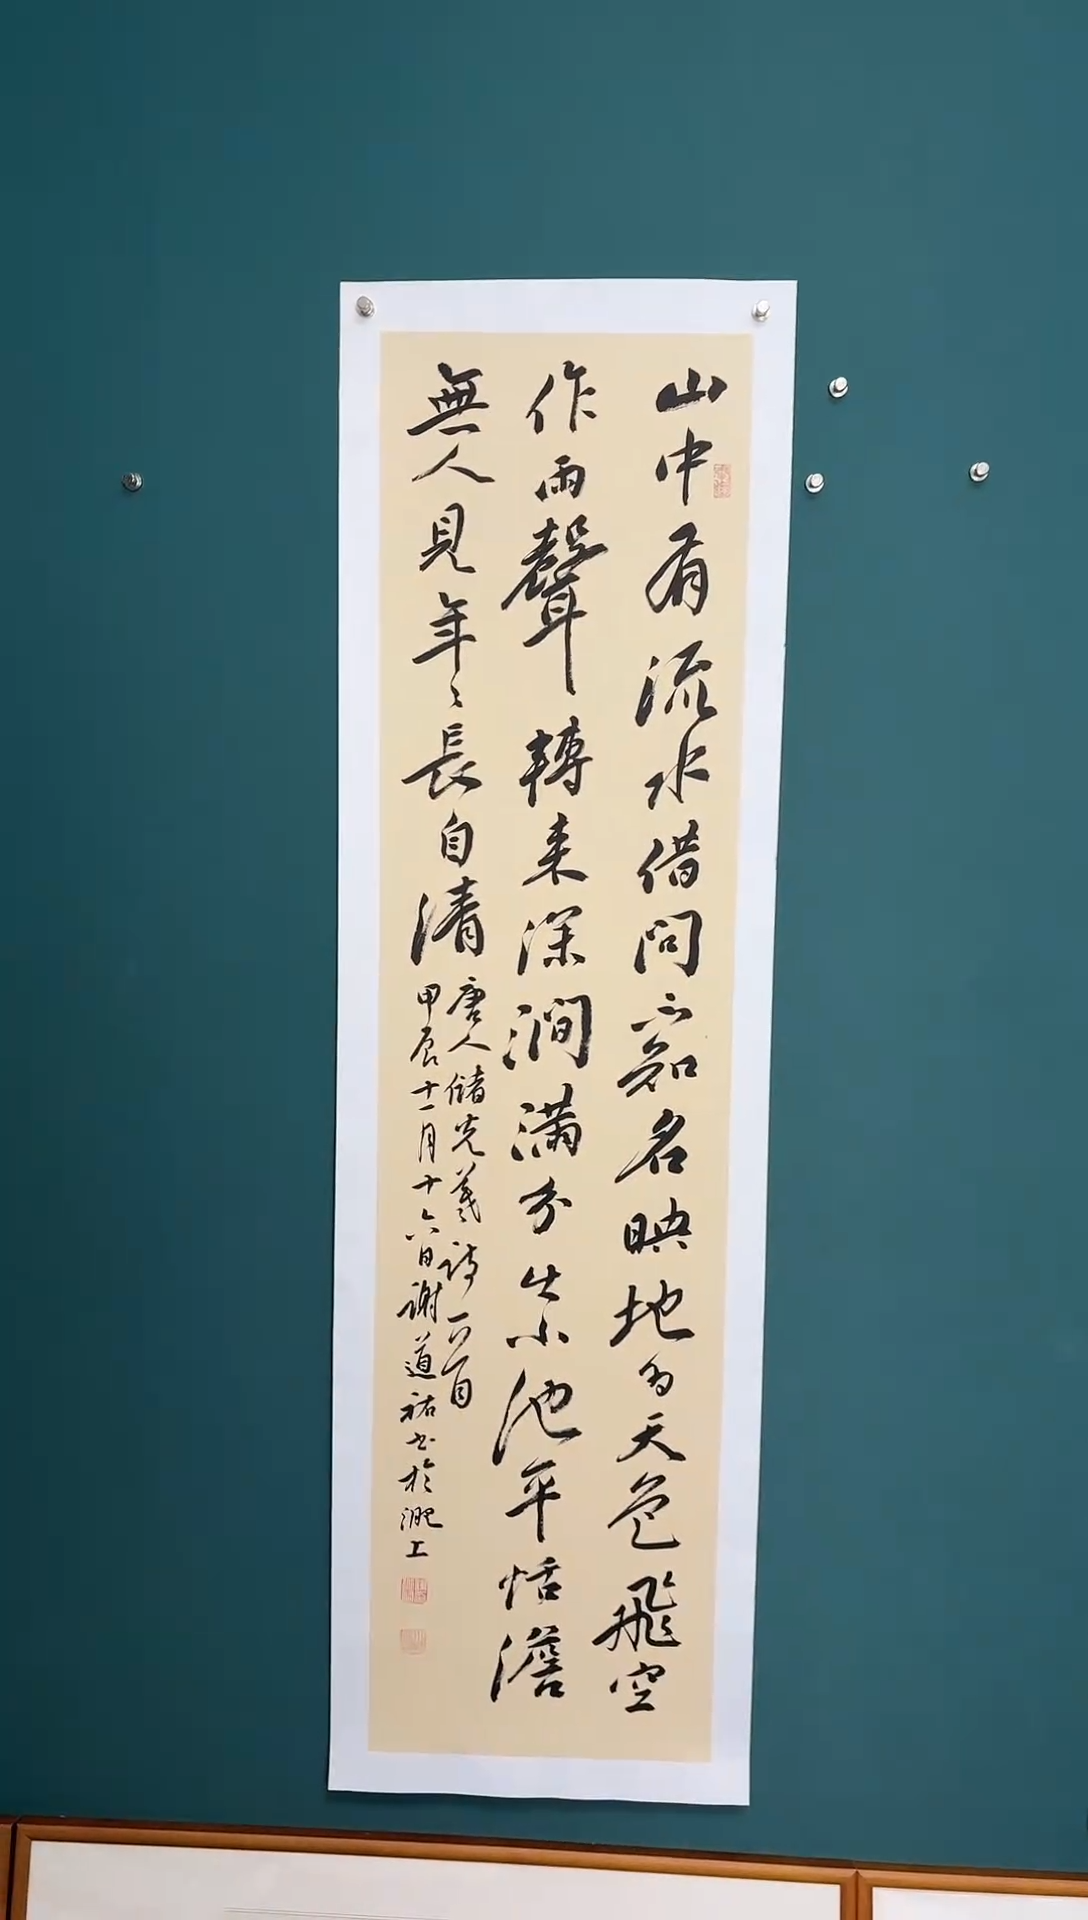 山中有流水借問不知名映地為天色飛空
作雨聲轉來深澗滿分出小池平恬澹
無人見年〻長自清
唐人儲光羲詩一首
甲辰十一月十六日謝道祐書於淝上